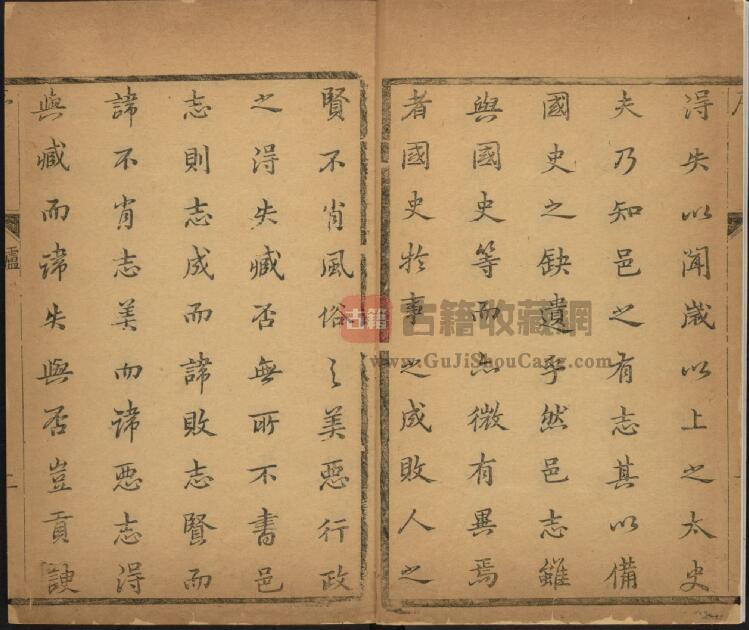 得失以聞歲以上之太史
夫乃知邑之有志其以備
國史之缺遺乎然邑志雖
與國史等而亦微有異焉
者國史於事之成敗人之
賢不肖風俗之美惡行政
之得失臧否無所不書邑
志則志成而諱敗志賢而
諱不肖志美而諱惡志得
與臧而諱失與否豈貢諛
古籍 古籍收藏网
www.GuJiShouCang.com